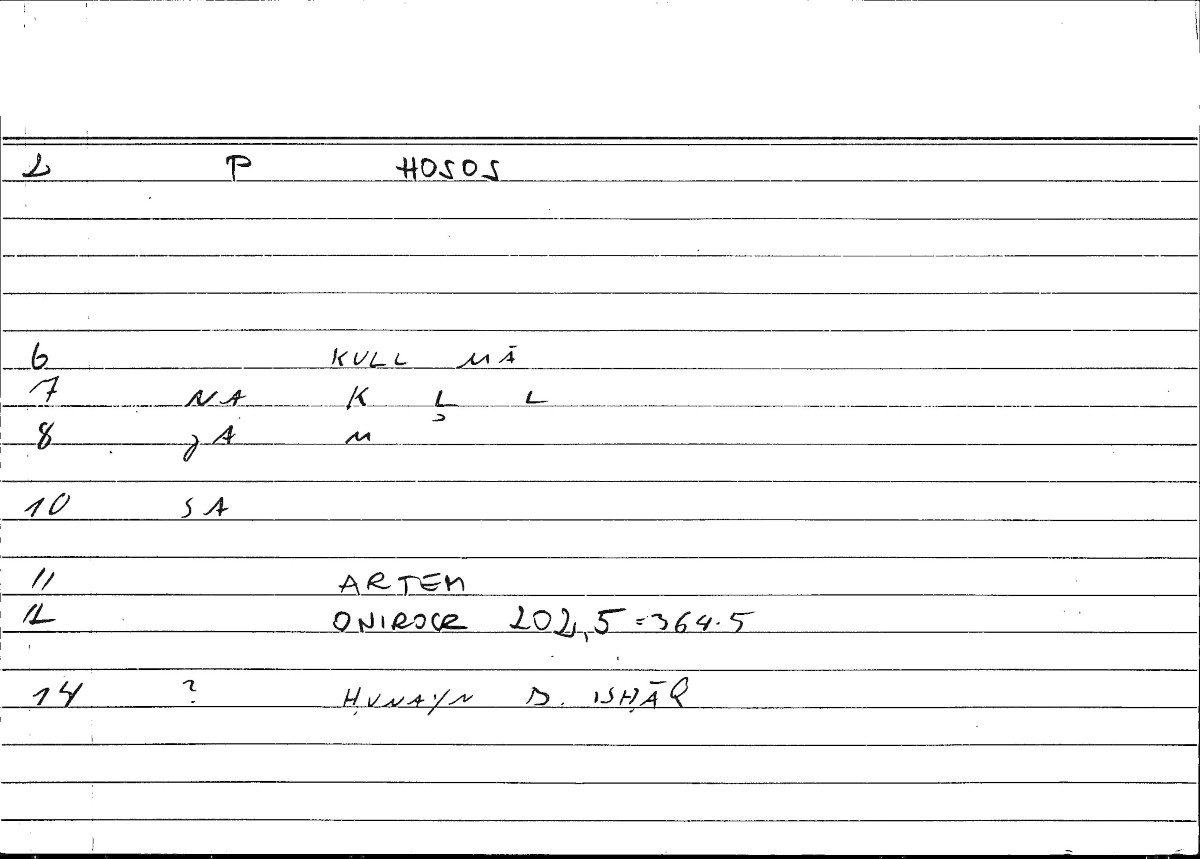 2 P HOSOS
6 KULL MĀ
7 NA K L L
8 JA M
10 SA
11 ARTEM
12 ONIROCR 202,5=364.5
14 ? ḤUNAYN B. ISḤĀQ